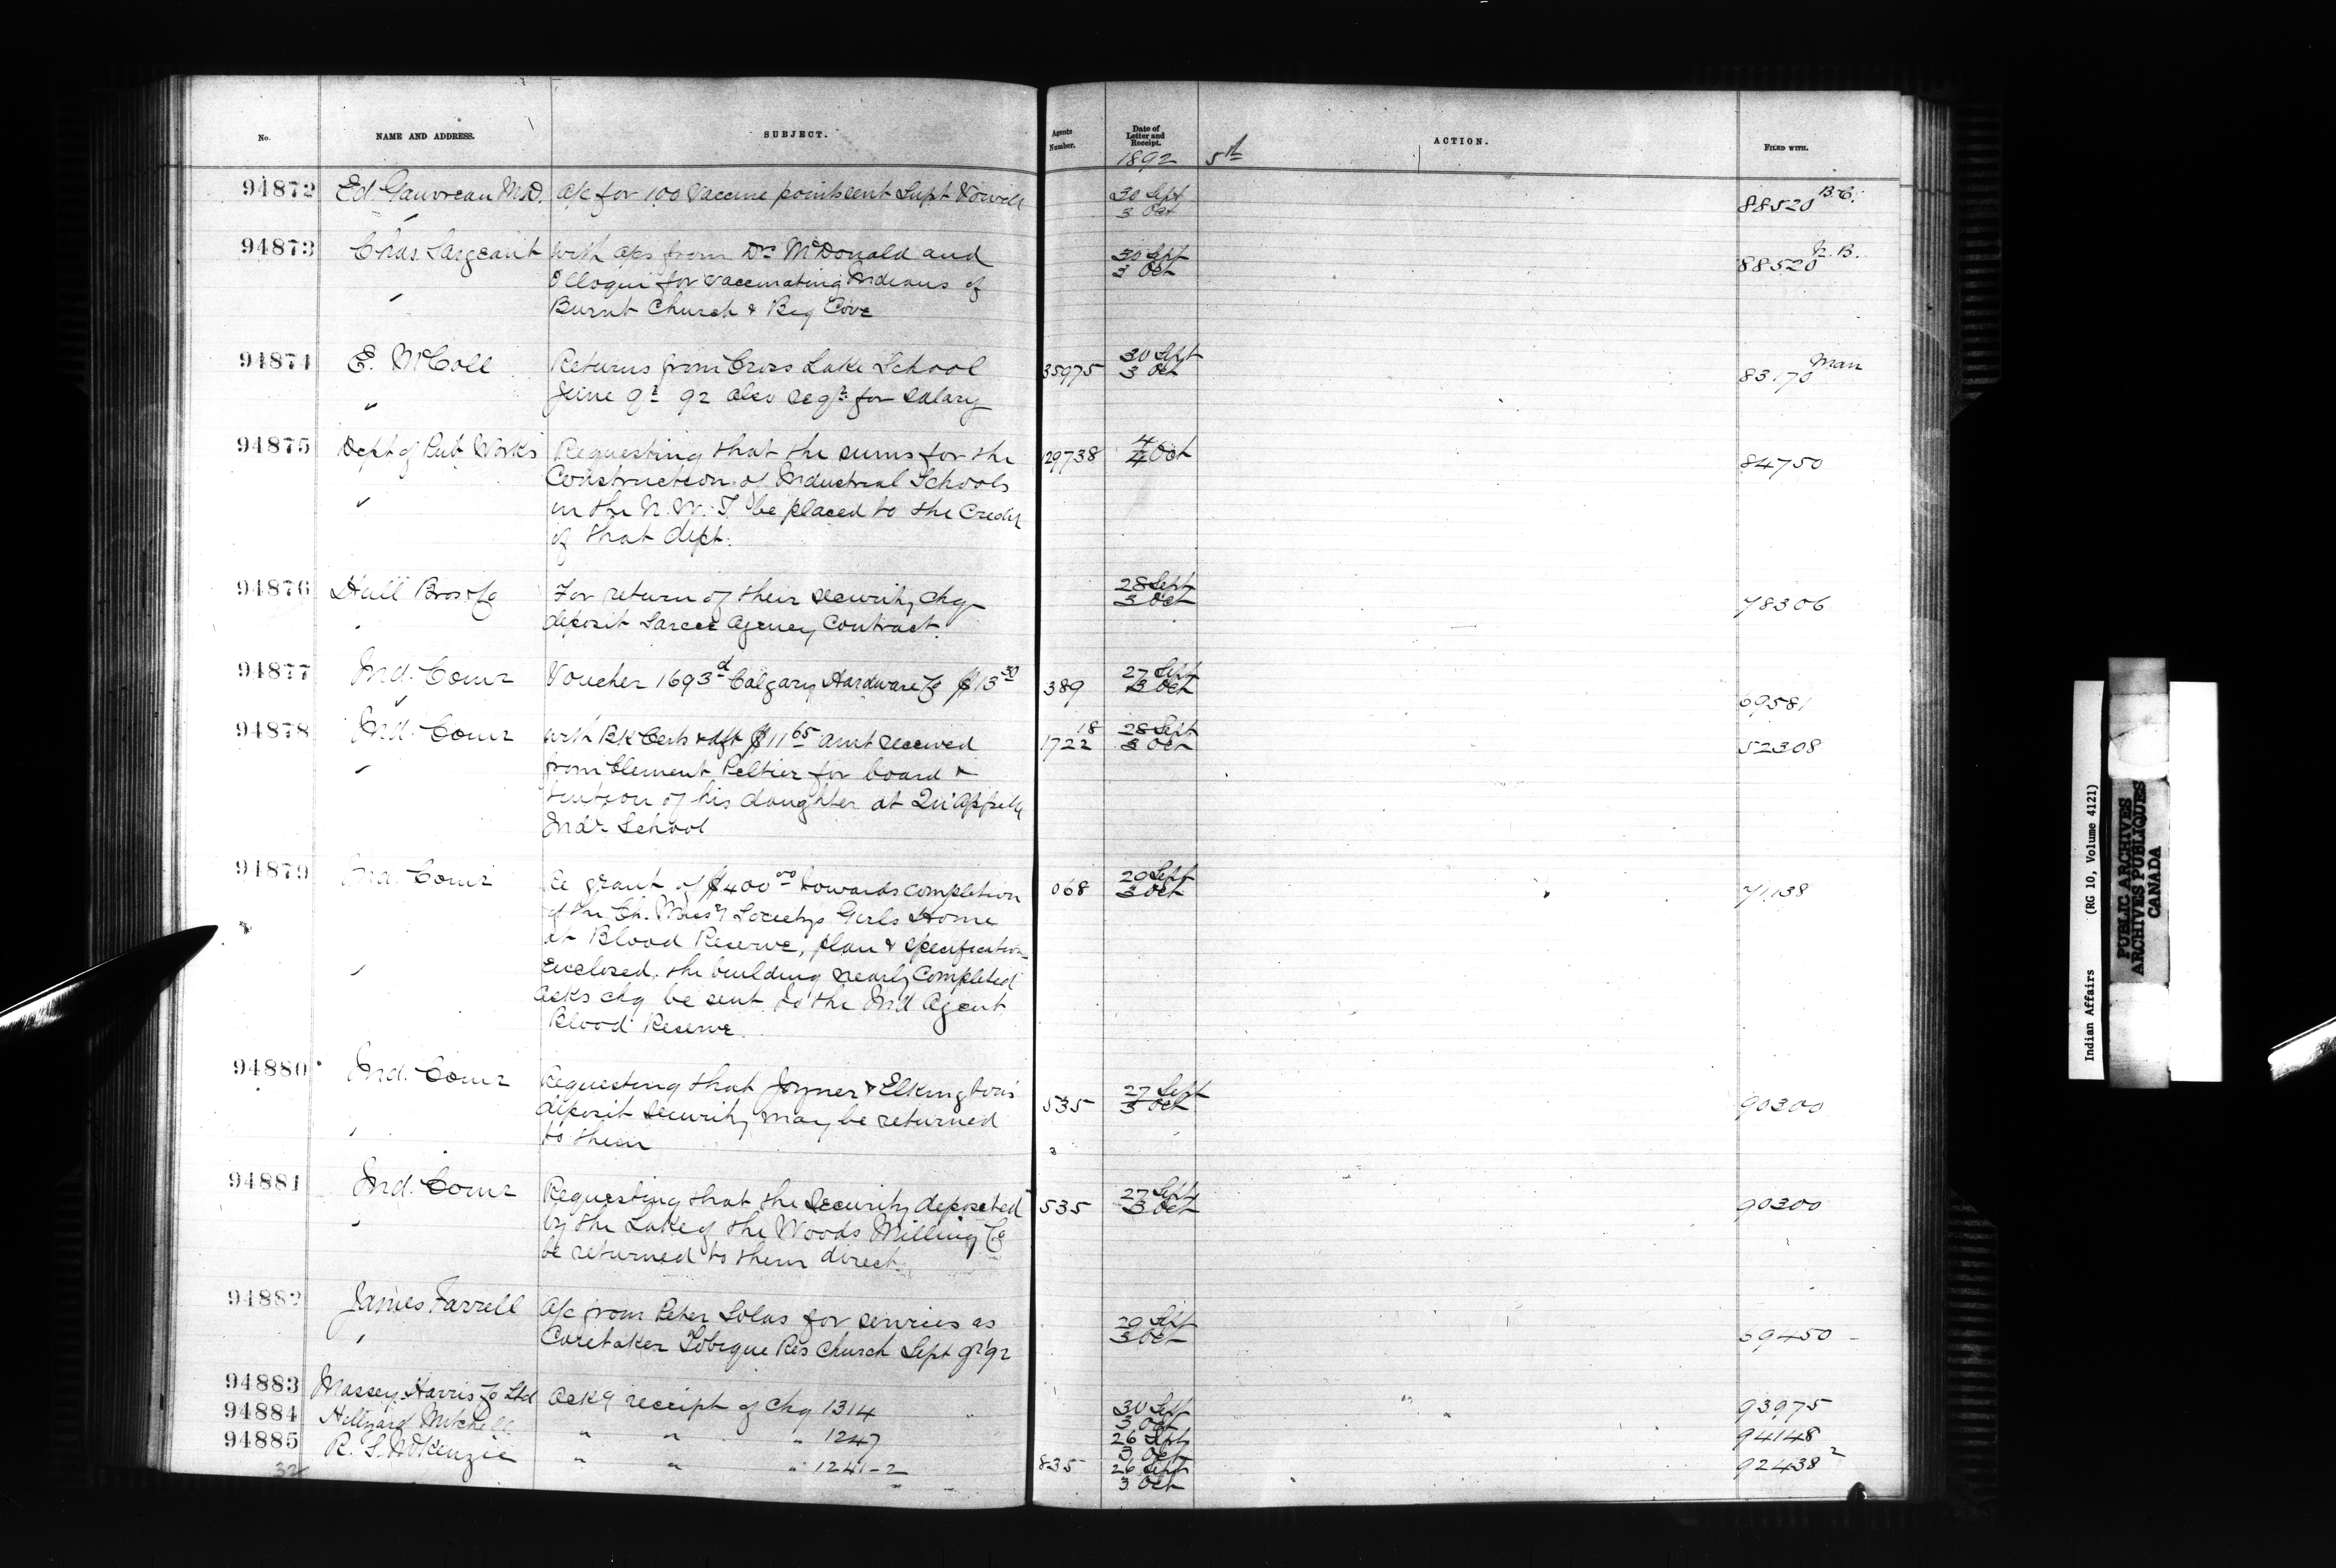 No. NAME AND ADDRESS. SUBJECT. Agents Number. Date of Letter and Receipt. ACTION. FILED WITH.
1892 5th
94872 Ed. Gauvreau M.D. a/c for 100 Vaccine points sent Supt Vowell 30 Sept 88520 B.C.
" 3 Oct
94873 Chas Sargeant with a/cs from Drs McDonald and 30 Sept 88520 N.B.
Olloqui for vaccinating Indians of 3 Oct
" Burnt Church & Big Cove
94874 E. McColl Returns from Cross Lake School 35975 30 Sept 83170 Man
" June qr 92 also reqn for salary 3 Oct
94875 Dept of Pub Works Requesting that the sums for the 129738 4 84750
Construction of Industrial Schools 4 Oct
" in the N.W.T. be placed to the Credit
of that dept.
94876 Hull Bros & Co For return of their security chq 28 Sept 78306
" deposit Sarcee Agency Contract. 3 Oct
94877 Ind. Comr Voucher 1693d Calgary Hardware Co $13 30 389 27 Sept 69581
" 3 Oct
94878 Ind. Comr with BK Certs & dft $11 65 amt received 18 1722 28 Sept 52308
" from Clement Peltier for board & 3 Oct
tuition of his daughter at Qu'Appelle
Indl School
94879 Ind. Comr Re grant of $400 00 towards completion 068 20 Sept 71138
of the Ch. Missy Societys Girls Home 3 Oct
at Blood Reserve, plan & specification
" Enclosed. the building nearly Completed
asks chq be sent to the Ind Agent
Blood Reserve.
94880 Ind. Comr Requesting that Joyner & Elkington's 535 27 Sept 90300
deposit security may be returned 3 Oct
" to them
94881 Ind. Comr Requesting that the Security deposited 535 27 Sept 90300
" by the Lake of the Woods Milling Co 3 Oct
be returned to them direct.
94882 James Farrell A/c from Peter Solus for services as 29 Sept 69450
" Caretaker Tobique Res Church Sept qr 92 3 Oct
94883 Massey Harris Co Ltd Ackg receipt of chq 1314 30 Sept 93975
3 Oct
94884 Hillyard Mitchell " " " 1247 26 Sept 94148
3 Oct
94885 R. S. McKenzie " " " 1241-2 835 26 Sept 92438 2
32 3 Oct
Indian Affairs (RG 10, Volume 4121)
PUBLIC ARCHIVES
ARCHIVES PUBLIQUES
CANADA